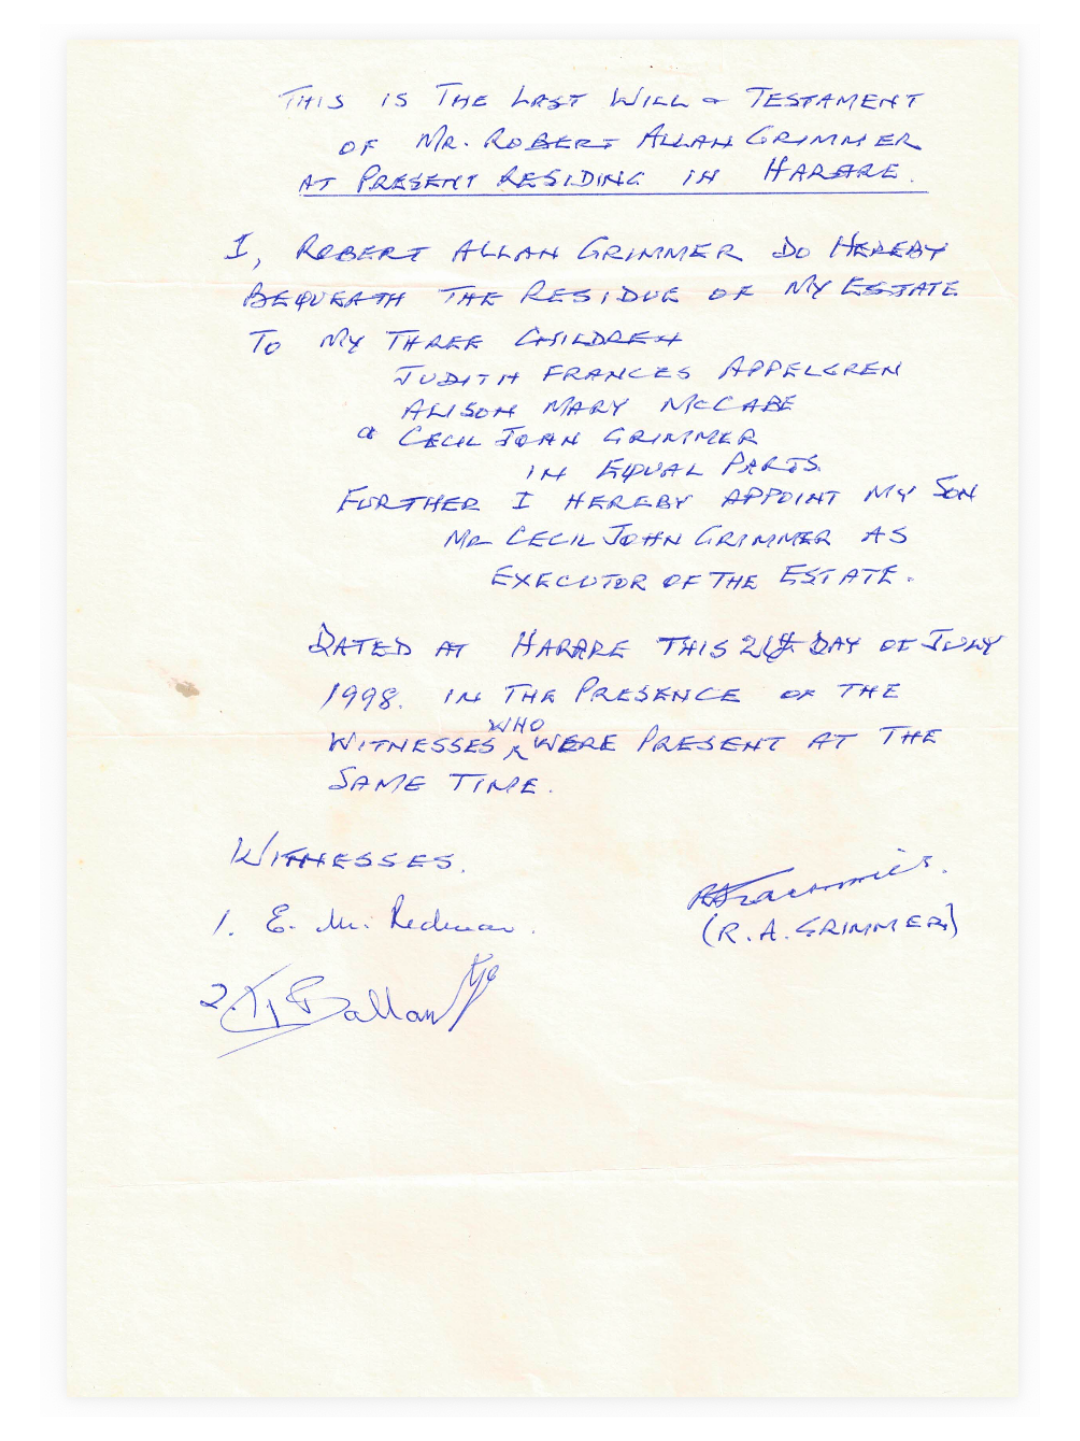 THIS IS THE LAST WILL & TESTAMENT
OF MR. ROBERT ALLAN GRIMMER
AT PRESENT RESIDING IN HARARE.
I, ROBERT ALLAN GRIMMER DO HEREBY
BEQUEATH THE RESIDUE OF MY ESTATE
TO MY THREE CHILDREN
JUDITH FRANCES APPELGREN
ALISON MARY MCCABE
& CECIL JOHN GRIMMER
IN EQUAL PARTS.
FURTHER I HEREBY APPOINT MY SON
MR CECIL JOHN GRIMMER AS
EXECUTOR OF THE ESTATE.
DATED AT HARARE THIS DAY OF JULY
1998. IN THE PRESENCE OF THE
WITNESSES WHO WERE PRESENT AT THE
SAME TIME.
WITNESSES.
1. E. M. Redman.
(R. A. GRIMMER)
2.